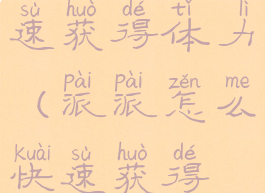 sù huò dé tǐ lì
速获得体力
pài pài zěn me
（派派怎么
kuài sù huò dé
快速获得